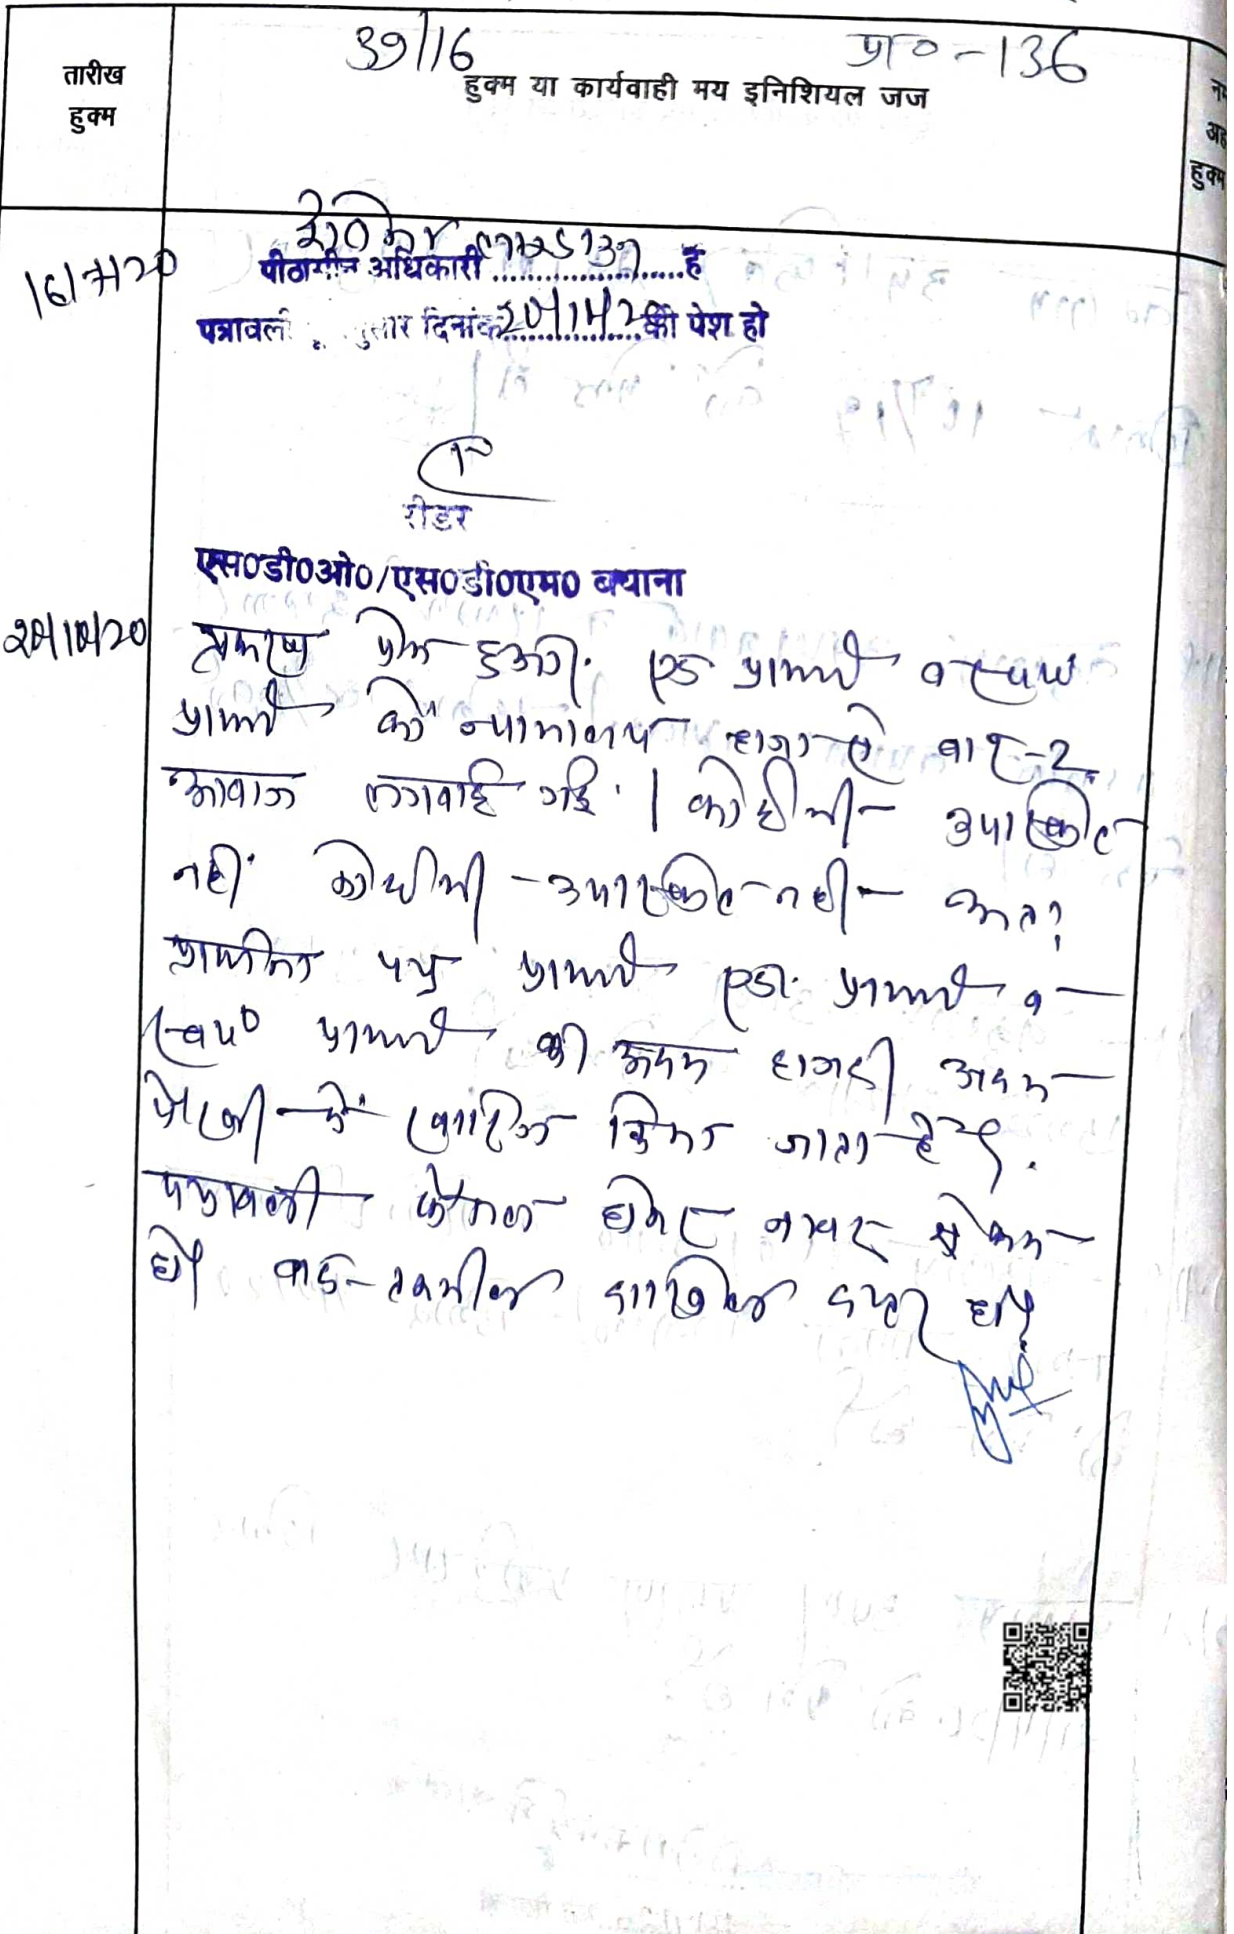 39/16 प्रा० - 136
तारीख
हुक्म
हुक्म या कार्यवाही मय इनिशियल जज
हुक्म
16/7/20
पीठासीन अधिकारी ..................... है
पत्रावली दिनांक ................. को पेश हो
रीडर
एस०डी०ओ०/एस०डी०एम० बयाना
प्रकरण पेश हुआ। एड प्रार्थी व स्वयं
प्रार्थी को न्यायालय हाजा से बार-2
आवाज लगवाई गई। कोई भी उपस्थित
नहीं कोई भी उपस्थित नहीं अतः
प्रार्थना पत्र प्रार्थी एड. प्रार्थी व
स्वयं प्रार्थी की अदम हाजरी अदम
पैरवी में खारिज किया जाता है।
पत्रावली फैसल होकर नम्बर से कम
हो बाद तकमील दाखिल दफ्तर हो।